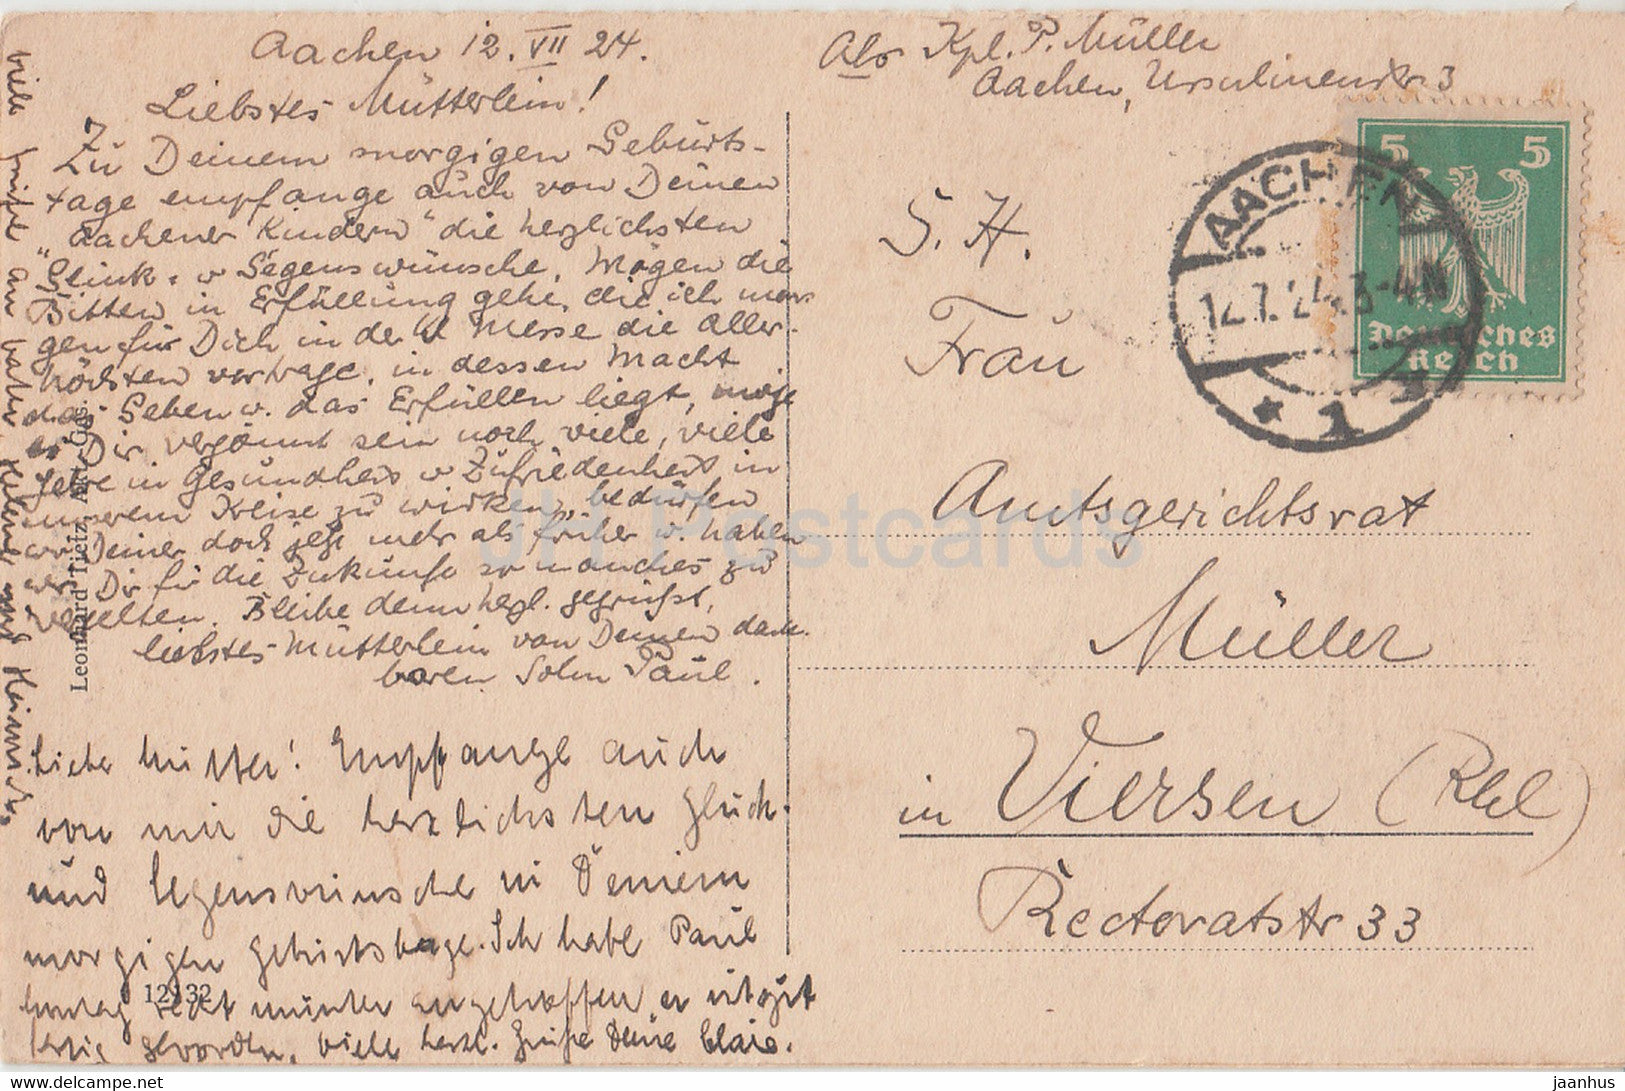 Aachen 12. VII 24.
Liebstes Mütterlein!
Zu Deinem morgigen Geburts-
tage empfange auch von Deinen
„Aachener Kindern“ die herzlichsten
Glück- u Segenswünsche. Mögen die
Bitten in Erfüllung gehn, die ich mor-
gen für Dich in der hl Messe die aller-
höchsten vortrage, in dessen Macht
das Geben u. das Erfüllen liegt, möge
es Dir vergönnt sein noch viele, viele
Jahre in Gesundheit u Zufriedenheit in
unserem Kreise zu wirken, bedürfen
wir Deiner doch jetzt mehr als früher u. haben
wir Dir für die Zukunft so manches zu
vergelten. Bleibe denn herzl. gegrüßt,
liebstes Mütterlein von Deinem dank-
baren Sohn Paul.
Liebe Mutter! Empfange auch
von mir die herzlichsten Glück-
und Segenswünsche zu Deinem
morgigen Geburtstage. Ich habe Paul
recht munter angetroffen, er ist gut
fertig geworden. Viele herzl. Grüße Deine Claire.
viele Grüße an Vater, Helene und Heinrich.
Leonhard Tietz, Akt.-Ges.
12932
Abs Kpl. P. Müller
Aachen, Ursulinenstr 3
5 5
Deutsches
Reich
AACHEN
12.7.24.3-4N
* 1 *
S. H.
Frau
Amtsgerichtsrat
Müller
in Viersen (Rhl)
Rectoratstr 33
JH Postcards
jaanhus
https://www.delcampe.net